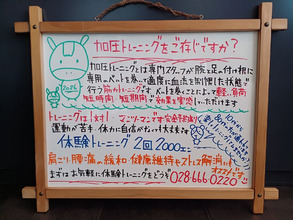 加圧トレーニングをご存じですか？
加圧トレーニングとは専門スタッフが腕と足の付け根に
専用のベルトを巻いて適度に血流を制限した状態で
行う筋力トレーニングです ベルトを巻くことによって軽い負荷
短時間 短期間で効果を実感していただけます
トレーニングは1対1 マンツーマンで安全
運動が苦手 体力に自信がなくても大丈夫です
体験トレーニング 2回 2000円
肩こり 腰痛の緩和 健康維持やストレス解消に
オススメです
まずはお気軽に体験トレーニングをどうぞ 028-666-0220